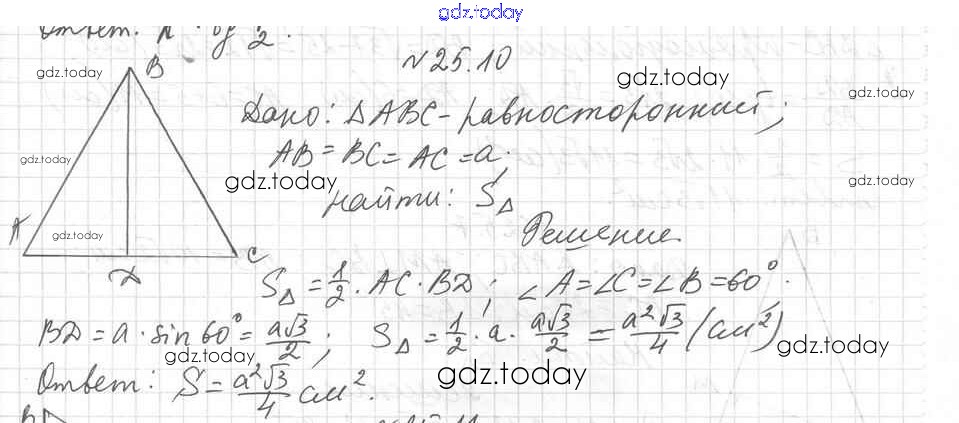 gdz.today
Ответ:
№25.10
gdz.today
gdz.today
B
gdz.today
Дано: ΔABC - равносторонний;
gdz.today
AB = BC = AC = a;
gdz.today
gdz.today
найти: S_Δ
gdz.today
Решение.
A
D
C
S_Δ = 1/2 · AC · BD; ∠A = ∠C = ∠B = 60°.
BD = a · sin 60° = a√3/2; S_Δ = 1/2 · a · a√3/2 = a²√3/4 (см²)
gdz.today
gdz.today
gdz.today
Ответ: S = a²√3/4 см².
B